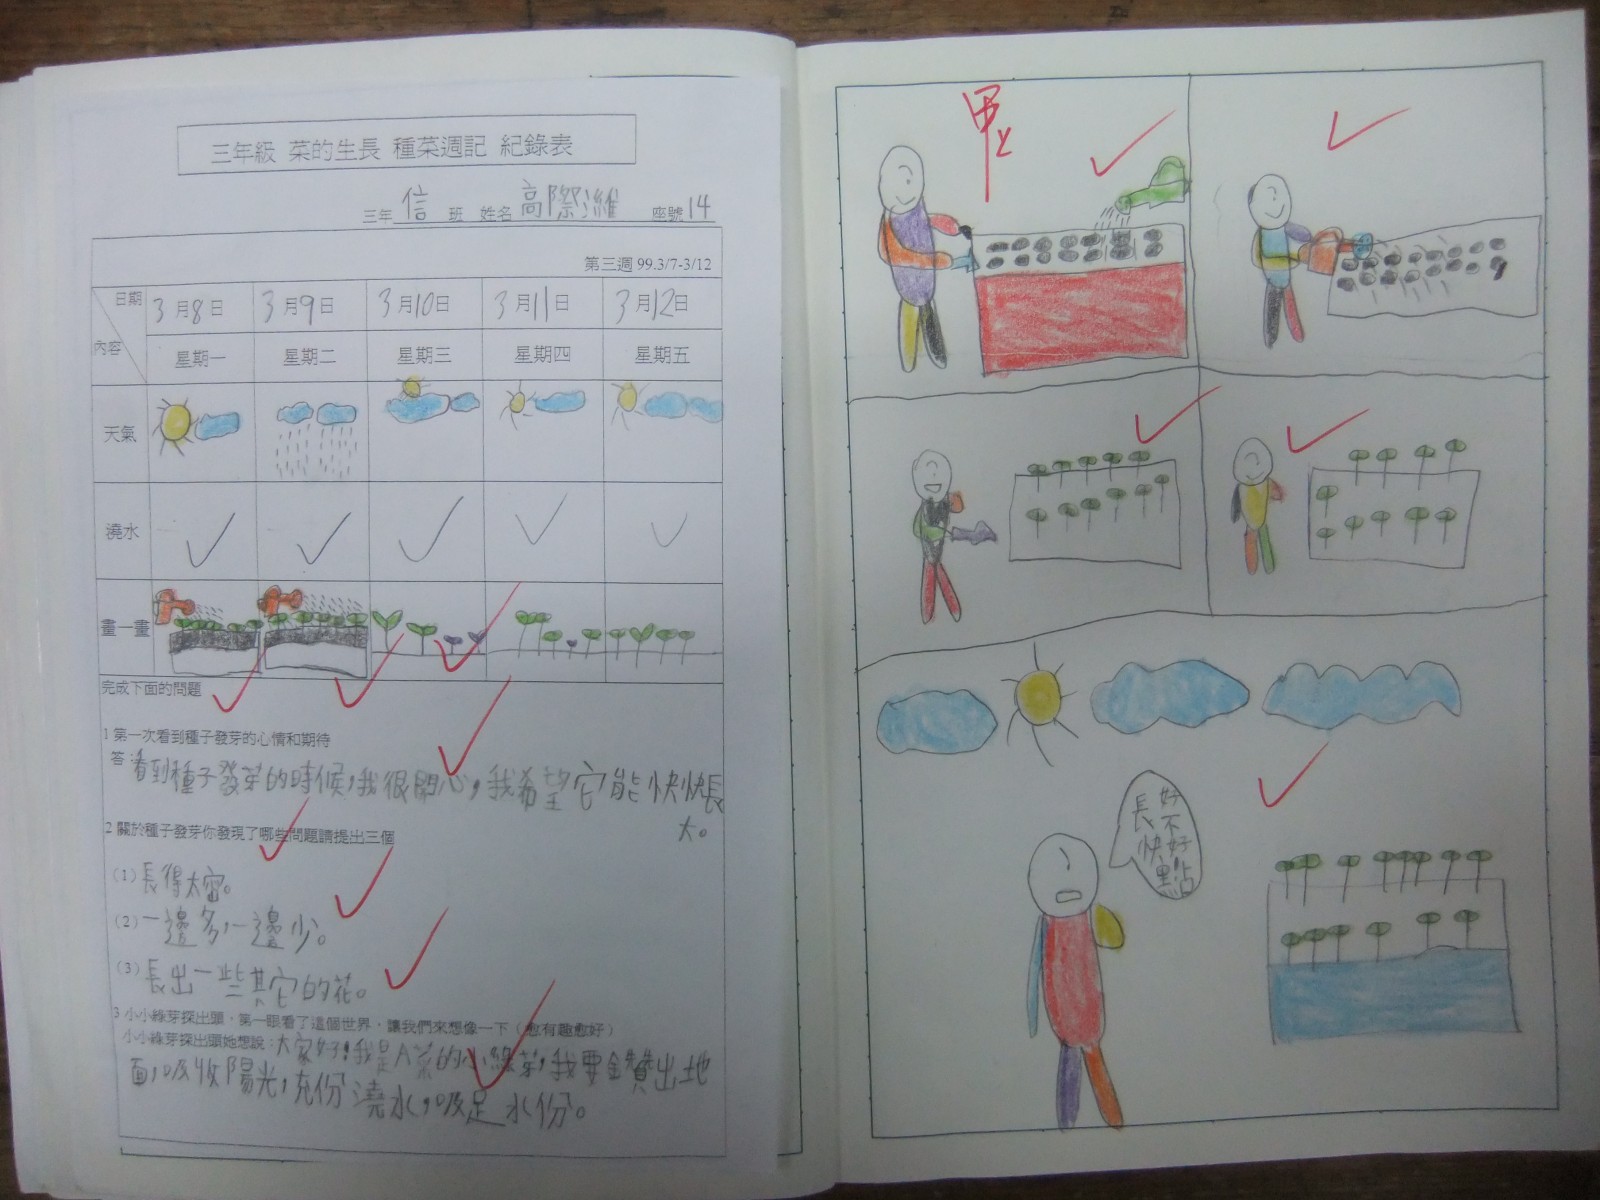 三年級 菜的生長 種菜週記 紀錄表
三年 信 班 姓名 高際濰 座號 14
第三週 99.3/7-3/12
日期 3月8日 3月9日 3月10日 3月11日 3月12日
內容 星期一 星期二 星期三 星期四 星期五
天氣
澆水
畫一畫
完成下面的問題
1 第一次看到種子發芽的心情和期待
答：看到種子發芽的時候，我很開心，我希望它能快快長
大。
2 關於種子發芽你發現了哪些問題請提出三個
(1) 長得太密。
(2) 一邊多，一邊少。
(3) 長出一些其它的花。
3 小小綠芽探出頭，第一眼看了這個世界，讓我們來想像一下（愈有趣愈好）
小小綠芽探出頭她想說：大家好！我是A菜的小綠芽，我要鑽出地
面，吸收陽光，充份澆水，吸足水份。
甲上
好不好
長快點